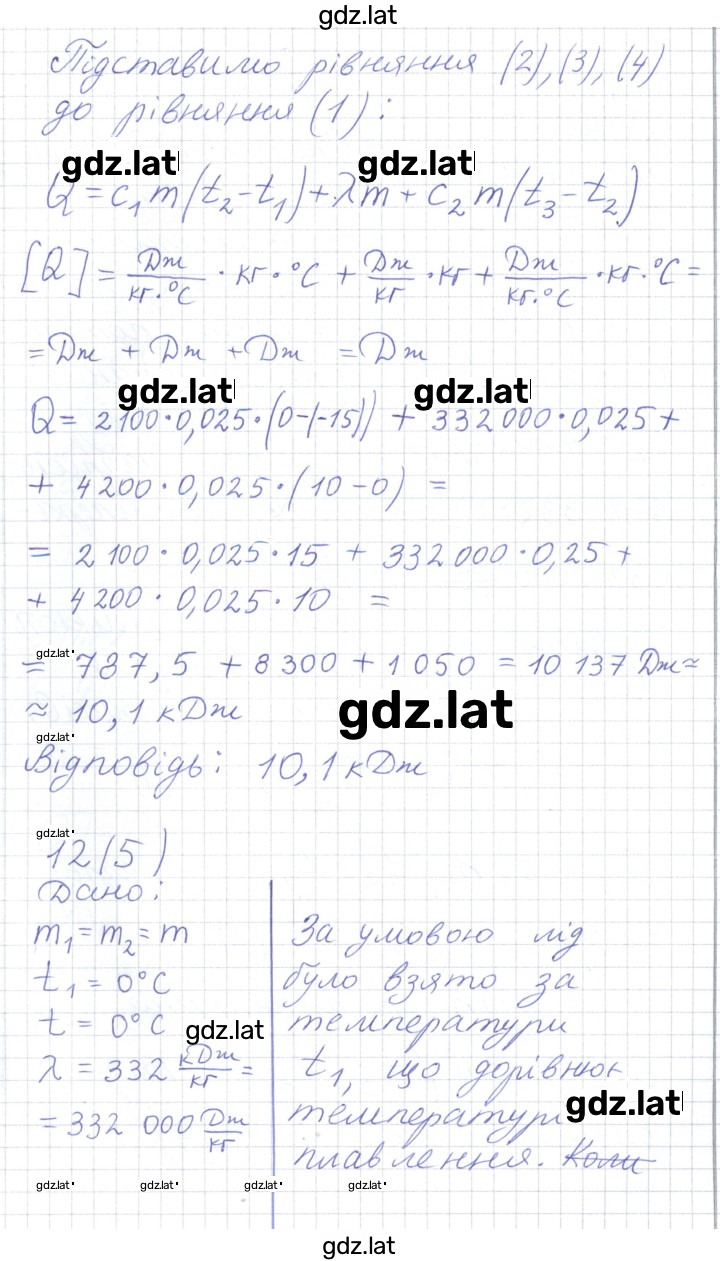 gdz.lat
Підставимо рівняння (2), (3), (4)
до рівняння (1):
gdz.lat gdz.lat
Q = c₁m(t₂-t₁)+λm+c₂m(t₃-t₂)
[Q] = Дж/кг·°C · кг·°C + Дж/кг · кг + Дж/кг·°C · кг·°C =
= Дж + Дж + Дж = Дж
gdz.lat gdz.lat
Q = 2100·0,025·(0-(-15)) + 332000·0,025 +
+ 4200·0,025·(10-0) =
= 2100·0,025·15 + 332000·0,25 +
+ 4200·0,025·10 =
gdz.lat
= 787,5 + 8300 + 1050 = 10 137 Дж ≈
≈ 10,1 кДж gdz.lat
gdz.lat
Відповідь: 10,1 кДж
gdz.lat
12(5)
Дано:
m₁=m₂=m
t₁ = 0°C
t = 0°C
gdz.lat
λ = 332 кДж/кг =
= 332 000 Дж/кг
За умовою лід
було взято за
температури
t₁, що дорівнює
gdz.lat
температурі
плавлення. Коли
gdz.lat gdz.lat gdz.lat gdz.lat
gdz.lat